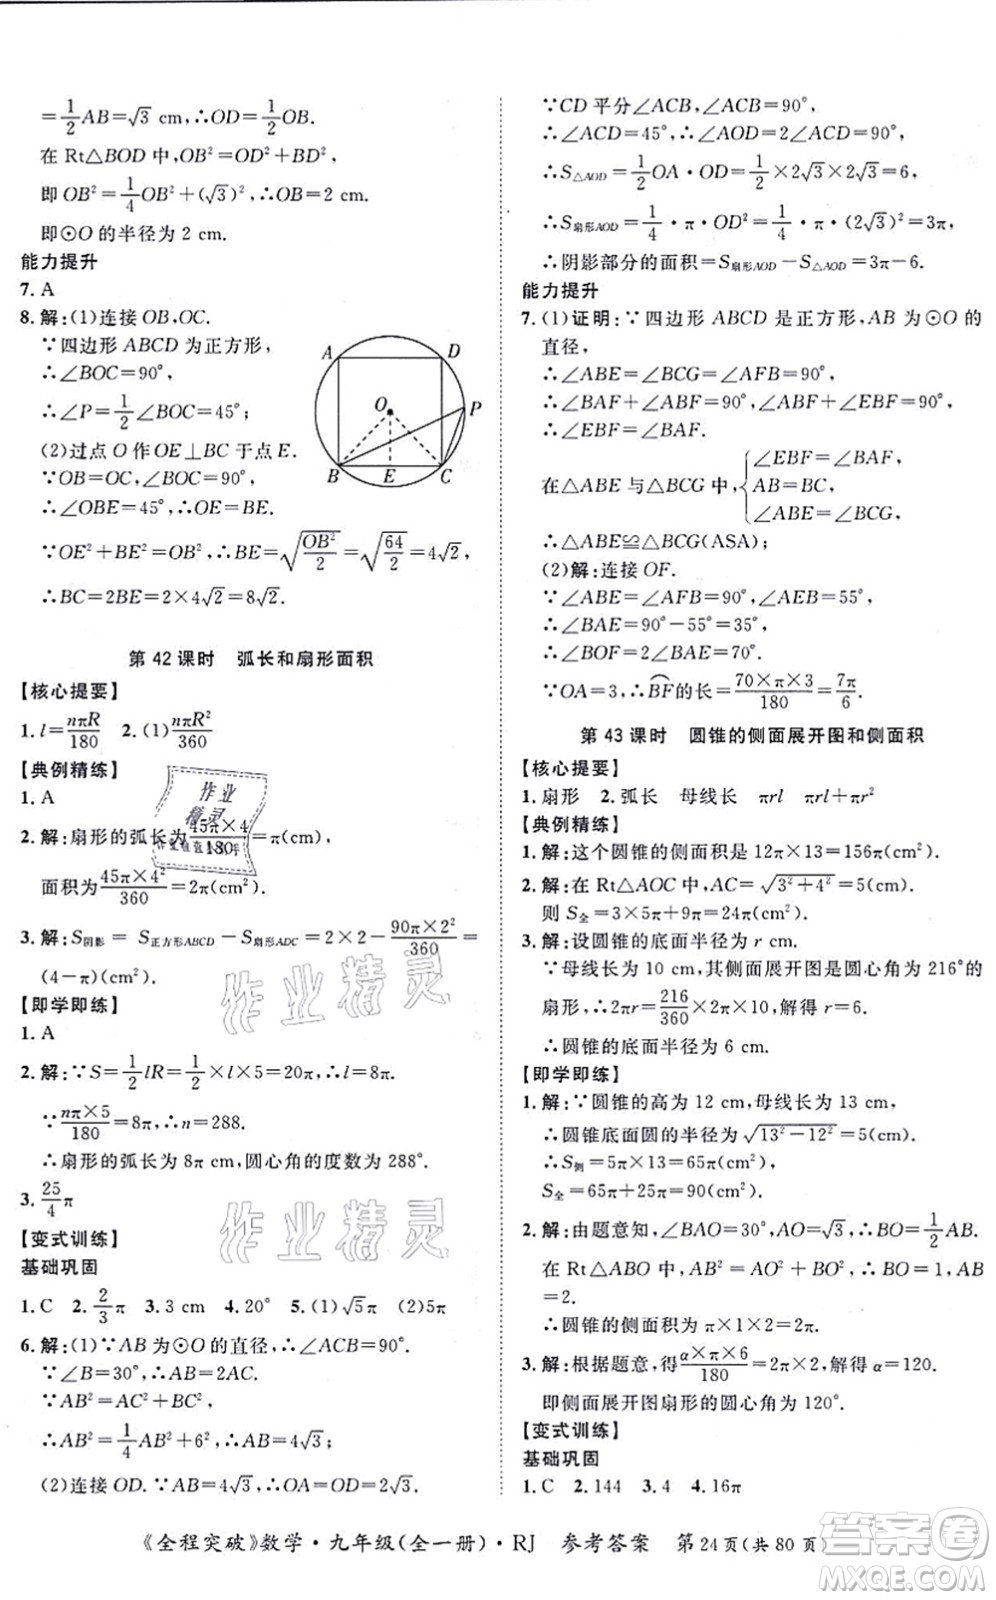 =1/2AB=√3 cm,∴OD=1/2OB.
在 Rt△BOD 中,OB²=OD²+BD²,
即 OB²=1/4OB²+(√3)².∴OB=2 cm.
即⊙O 的半径为 2 cm.
能力提升
7. A
8. 解:(1)连接 OB,OC.
∵四边形 ABCD 为正方形,
∴∠BOC=90°,
∴∠P=1/2∠BOC=45°;
(2)过点 O 作 OE⊥BC 于点 E.
∵OB=OC,∠BOC=90°,
∴∠OBE=45°,∴OE=BE.
∵OE²+BE²=OB²,∴BE=√(OB²/2)=√(64/2)=4√2,
∴BC=2BE=2×4√2=8√2.
A
D
O
P
B
E
C
第 42 课时 弧长和扇形面积
【核心提要】
1. l=nπR/180 2. (1)nπR²/360
【典例精练】
1. A
2. 解:扇形的弧长为45π×4/180=π(cm)
面积为45π×4²/360=2π(cm²).
3. 解:S阴影= S正方形ABCD-S扇形ADC=2×2-90π×2²/360=
(4-π)(cm²).
【即学即练】
1. A
2. 解:∵S=1/2lR=1/2×l×5=20π,∴l=8π.
∵nπ×5/180=8π,∴n=288.
∴扇形的弧长为 8π cm,圆心角的度数为 288°.
3. 25/4π
【变式训练】
基础巩固
1. C 2. 2/3π 3. 3 cm 4. 20° 5. (1)√5π (2)5π
6. 解:(1)∵AB 为⊙O 的直径,∴∠ACB=90°.
∵∠B=30°,∴AB=2AC.
∵AB²=AC²+BC²,
∴AB²=1/4AB²+6²,∴AB=4√3.
(2)连接 OD.∵AB=4√3,∴OA=OD=2√3.
∵CD 平分∠ACB,∠ACB=90°,
∴∠ACD=45°,∴∠AOD=2∠ACD=90°,
∴S△AOD=1/2OA·OD=1/2×2√3×2√3=6,
∴S扇形AOD=1/4·π·OD²=1/4·π·(2√3)²=3π,
∴阴影部分的面积=S扇形AOD-S△AOD=3π-6.
能力提升
7. (1)证明:∵四边形 ABCD 是正方形,AB 为⊙O 的
直径,
∴∠ABE=∠BCG=∠AFB=90°,
∴∠BAF+∠ABF=90°,∠ABF+∠EBF=90°,
∴∠EBF=∠BAF.
在△ABE 与△BCG 中,{∠EBF=∠BAF,
AB=BC,
∠ABE=∠BCG,
∴△ABE≌△BCG(ASA);
(2)解:连接 OF.
∵∠ABE=∠AFB=90°,∠AEB=55°,
∴∠BAE=90°-55°=35°,
∴∠BOF=2∠BAE=70°.
∵OA=3,∴B͡F的长=70×π×3/180=7π/6.
第 43 课时 圆锥的侧面展开图和侧面积
【核心提要】
1. 扇形 2. 弧长 母线长 πrl πrl+πr²
【典例精练】
1. 解:这个圆锥的侧面积是 12π×13=156π(cm²).
2. 解:在 Rt△AOC 中,AC=√(3²+4²)=5(cm)
则 S全=3×5π+9π=24π(cm²).
3. 解:设圆锥的底面半径为 r cm.
∵母线长为 10 cm,其侧面展开图是圆心角为 216°的
扇形,∴2πr=216/360×2π×10,解得 r=6.
∴圆锥的底面半径为 6 cm.
【即学即练】
1. 解:∵圆锥的高为 12 cm,母线长为 13 cm,
∴圆锥底面圆的半径为√(13²-12²)=5(cm)
∴S侧=5π×13=65π(cm²),
S全=65π+25π=90π(cm²).
2. 解:由题意知,∠BAO=30°,AO=√3,∴BO=1/2AB.
在 Rt△ABO 中,AB²=AO²+BO²,∴BO=1,AB
=2.
∴圆锥的侧面积为 π×1×2=2π(cm²).
3. 解:根据题意,得α×π×6/180=2π×2,解得 α=120.
即侧面展开图扇形的圆心角为 120°.
【变式训练】
基础巩固
1. C 2. 144 3. 4 4. 16π
作业
精灵
作业精灵
作业精灵
《全程突破》数学·九年级(全一册)·RJ 参考答案 第 24 页(共 80 页)
作业精灵
MXQE.COM